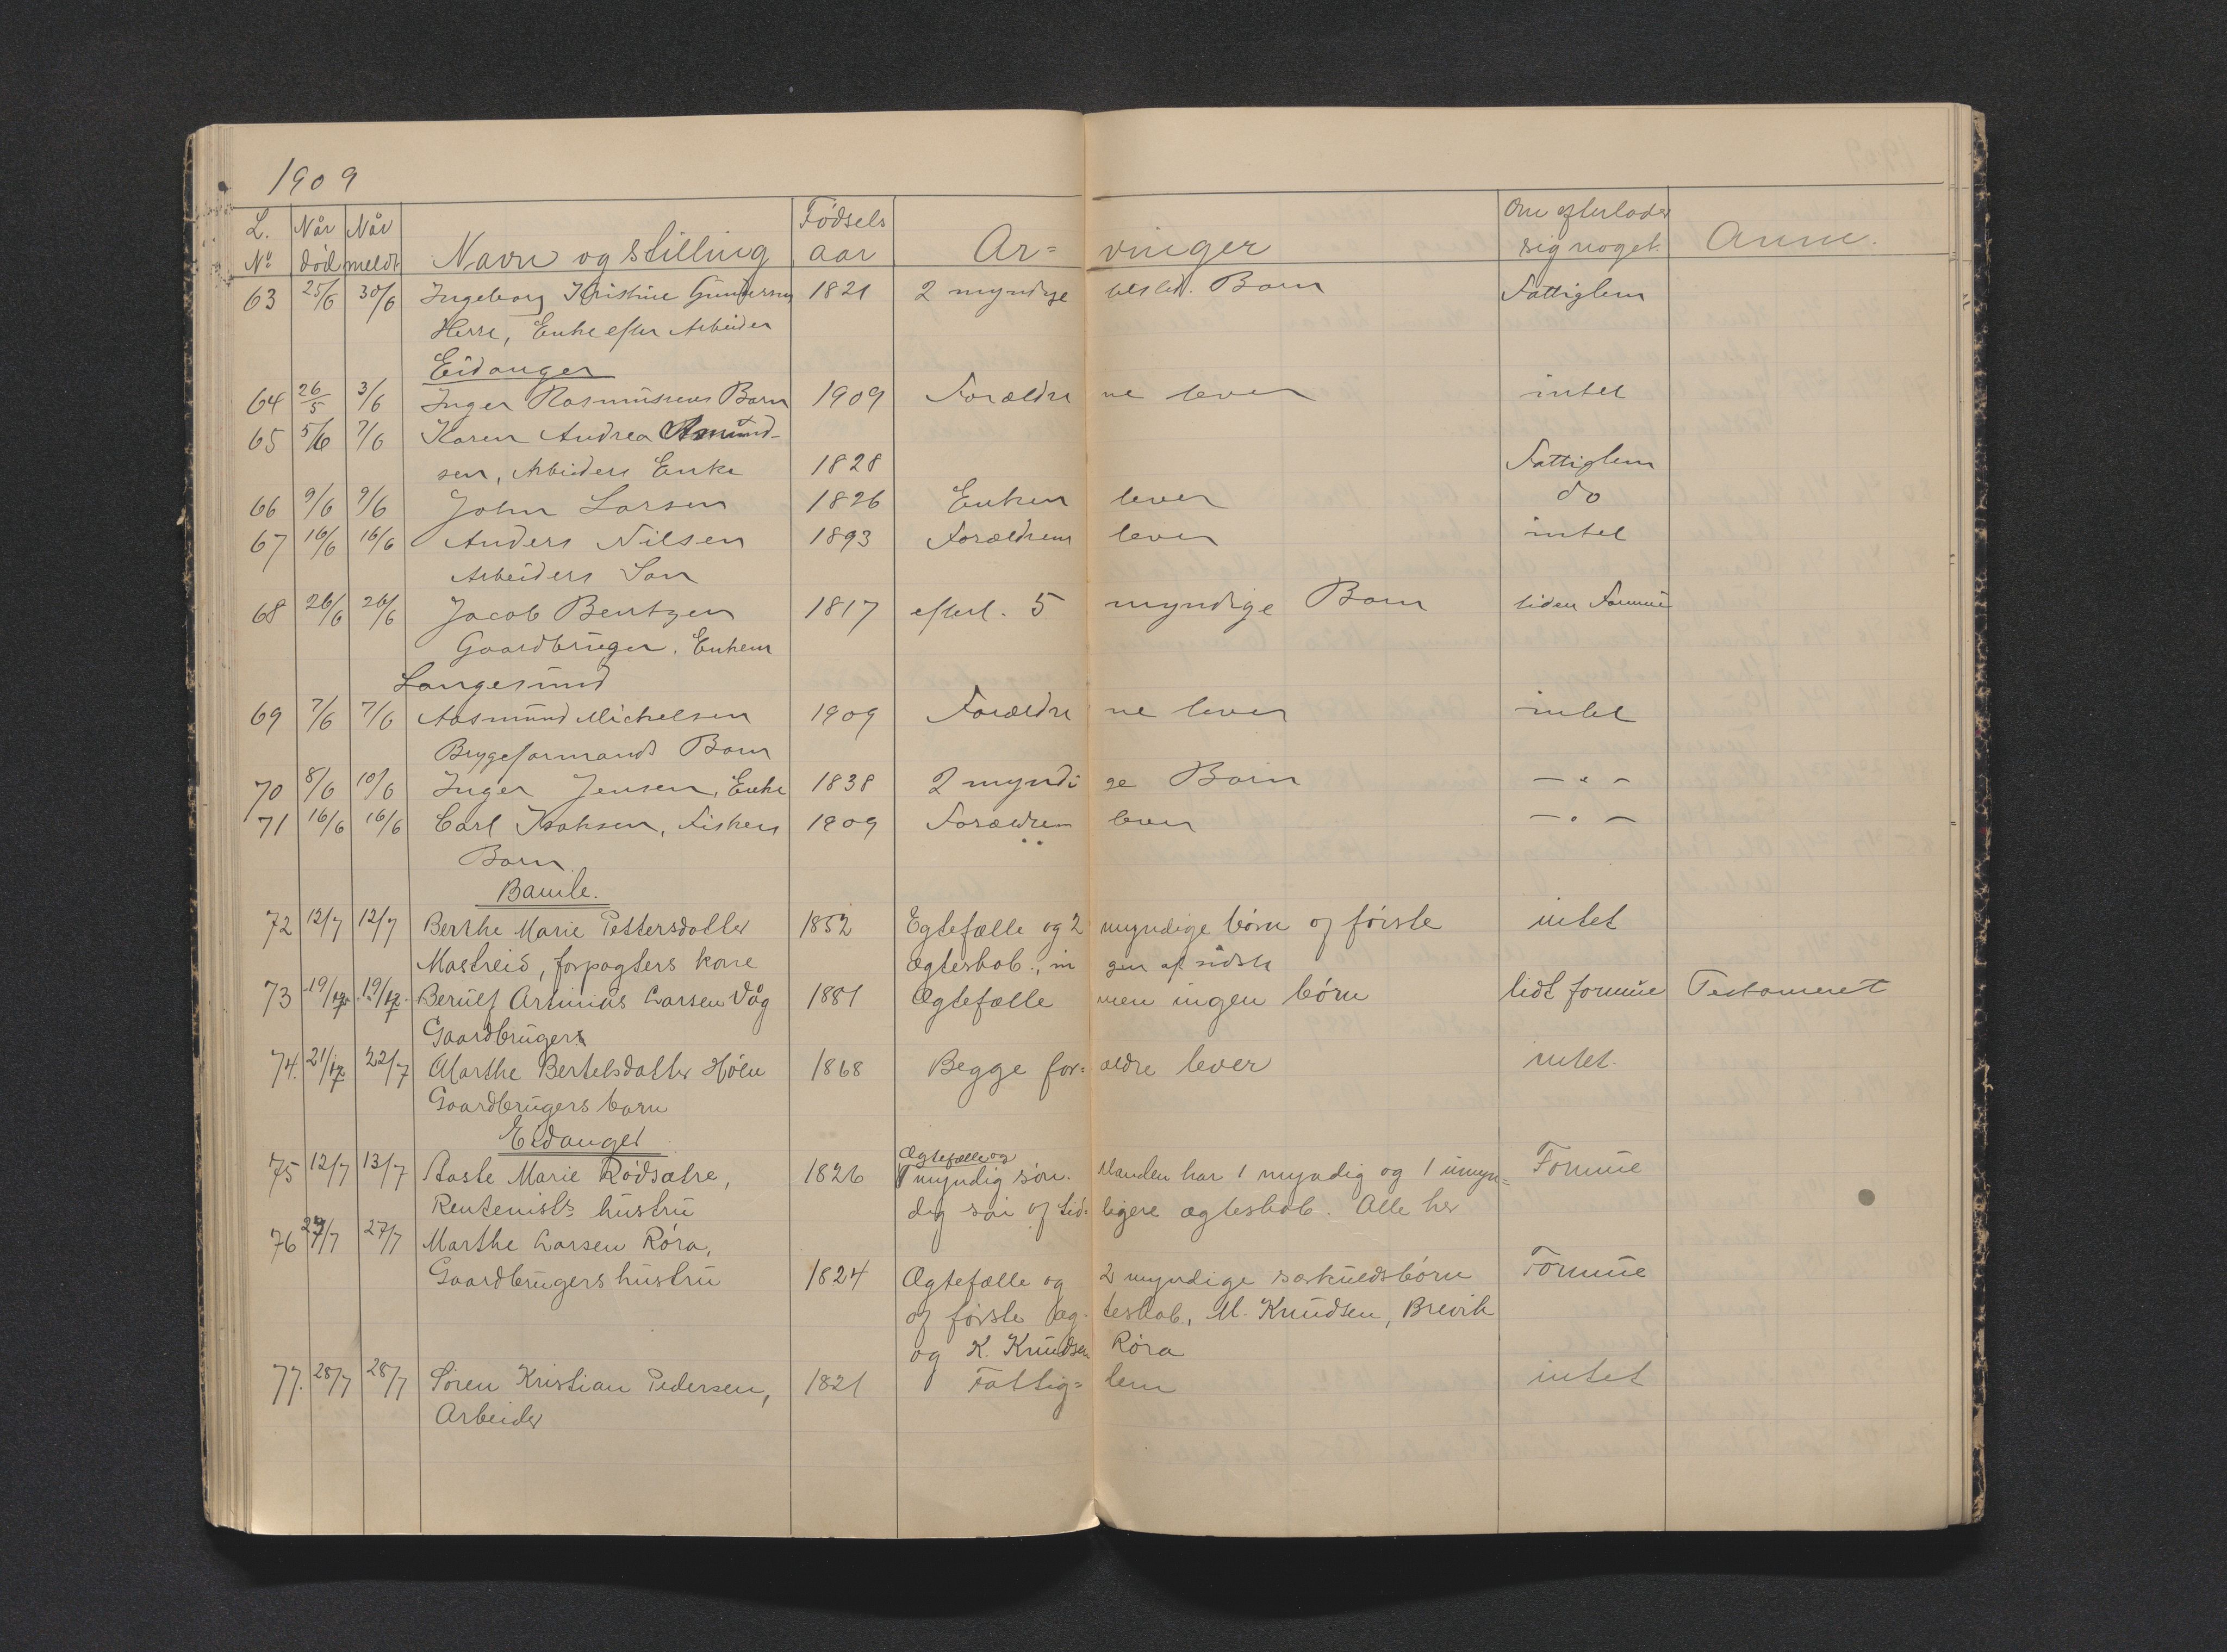 1909
L. Når Når Navn og stilling Fødsels Ar= vinger Om efterlader Anm.
No død meldt aar sig noget.
63 25/6 30/6 Ingeborg Kristine Gundersen 1821 2 myndige Børn Fattiglem
Herre, Enke efter Arbeider
Eidanger
64 26/5 3/6 Inger Rasmussens Barn 1909 Forældre ne lever intet
65 5/6 7/6 Karen Andrea Asmund-
sen, Arbeiders Enke 1828 Fattiglem
66 9/6 9/6 John Larsen 1826 Enken lever do
67 16/6 16/6 Anders Nilsen 1893 Forældrene lever intet
Arbeiders Søn
68 26/6 26/6 Jacob Bentzen 1817 efterl. 5 myndige Børn liden Formue
Gaardbruger. Enkem
Langesund
69 7/6 7/6 Aasmund Michelsen 1909 Forældre ne lever intet
Bryggeformands Barn
70 8/6 10/6 Inger Jensen, Enke 1838 2 myndi ge Børn — " —
71 16/6 16/6 Carl Isaksen, Fiskers 1909 Forældren lever — " —
Barn
Bamle.
72 12/7 12/7 Berthe Marie Pettersdatter 1852 Egtefælle og 2 myndige børn af første intet
Mastreid, forpagters kone ægteskab., in gen af sidste
73 19/7 19/7 Berulf Artinius Larsen Våg 1881 Ægtefælle men ingen børn lidt formue Testament
Gaardbruger
74. 21/7 22/7 Marthe Bertelsdatter Høen 1868 Begge for= ældre lever intet.
Gaardbrugers barn
Eidanger
75 12/7 13/7 Aaste Marie Rødsætre, 1826 Ægtefælle og 1 myndig søn. Manden har 1 myndig og 1 umyn= Formue
Rentenists hustru dig søn af tid= ligere ægteskab. Alle her
76 27/7 27/7 Marthe Larsen Røra,
Gaardbrugers hustru 1824 Ægtefælle og 2 myndige særkuldsbørn Formue
af første æg- teskab, M. Knudsen, Brevik
og K. Knudsen Røra
77. 28/7 28/7 Søren Kristian Pedersen, 1821 Fattig= lem intet
Arbeider